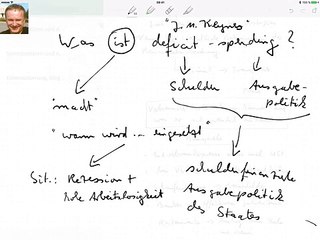 "J. M. Keynes"
Was ist deficit-spending?
Schulden Ausgabe-
politik
"macht"
"wann wird ... eingesetzt"
Sit.: Rezession +
hohe Arbeitslosigkeit
schuldenfinanzierte
Ausgabepolitik
des Staates